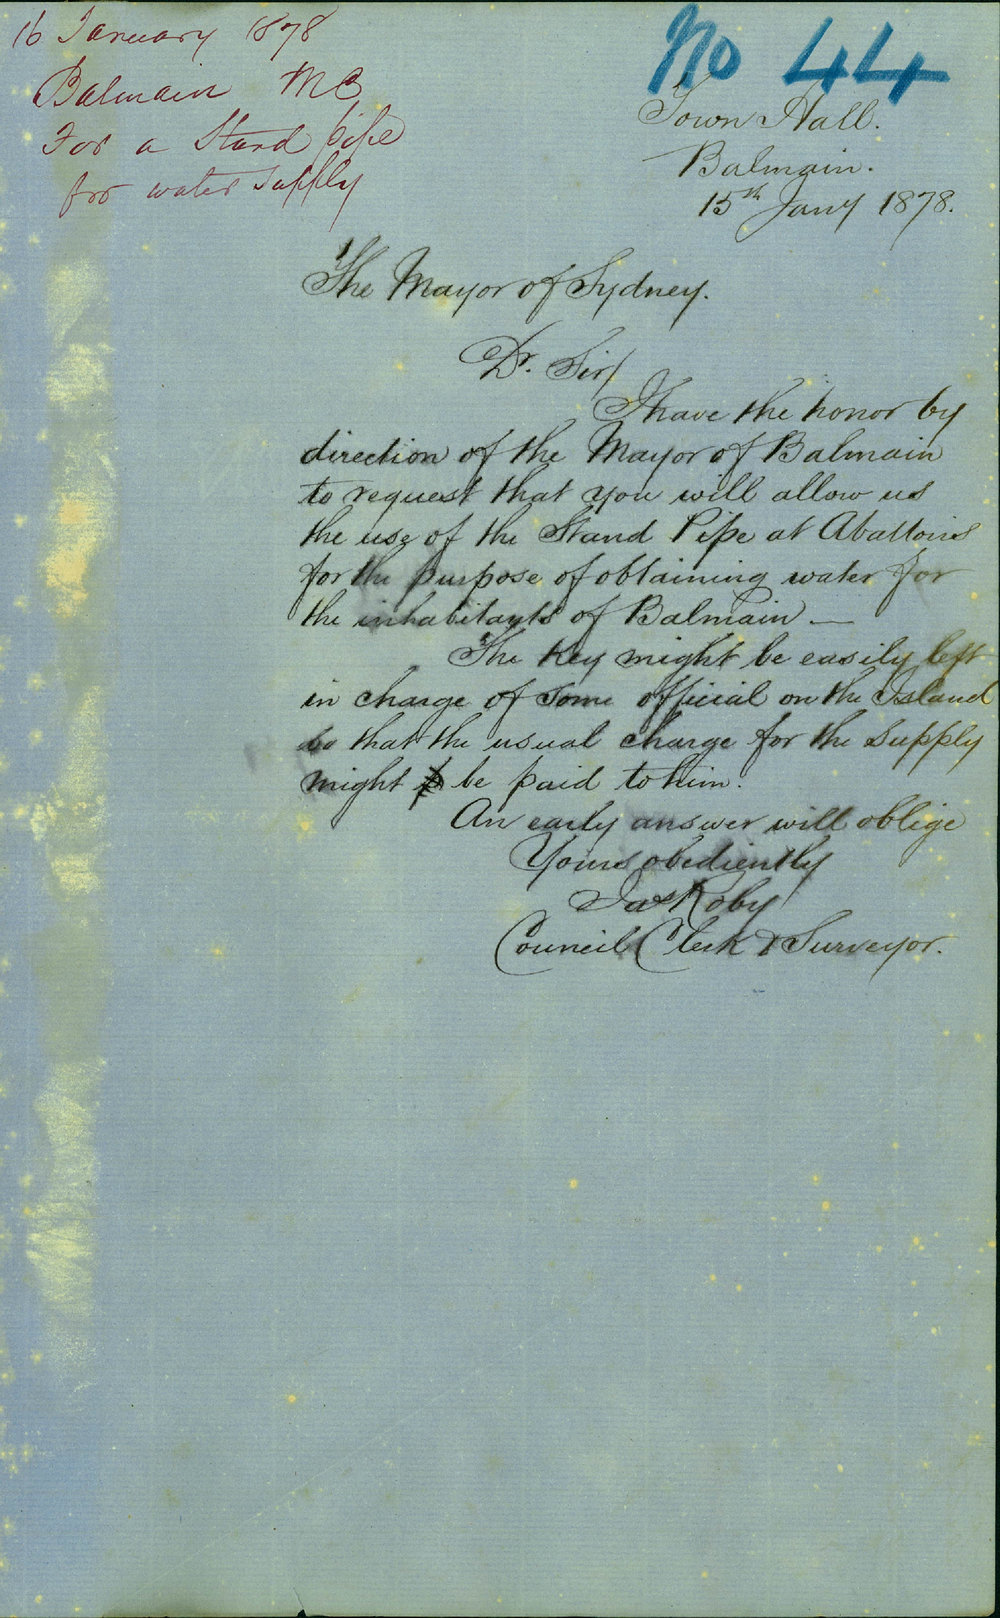 16 January 1878
Balmain MC
For a Stand pipe
for water supply
No 44
Town Hall.
Balmain.
15th Jany 1878.
The Mayor of Sydney.
Dr. Sir/
I have the honor by
direction of the Mayor of Balmain
to request that you will allow us
the use of the Stand Pipe at Abattoirs
for the purpose of obtaining water for
the inhabitants of Balmain —
The Key might be easily left
in charge of some official on the Island
so that the usual charge for the supply
might be paid to him.
An early answer will oblige
Yours obediently
Jas Roby
Council Clerk & Surveyor.